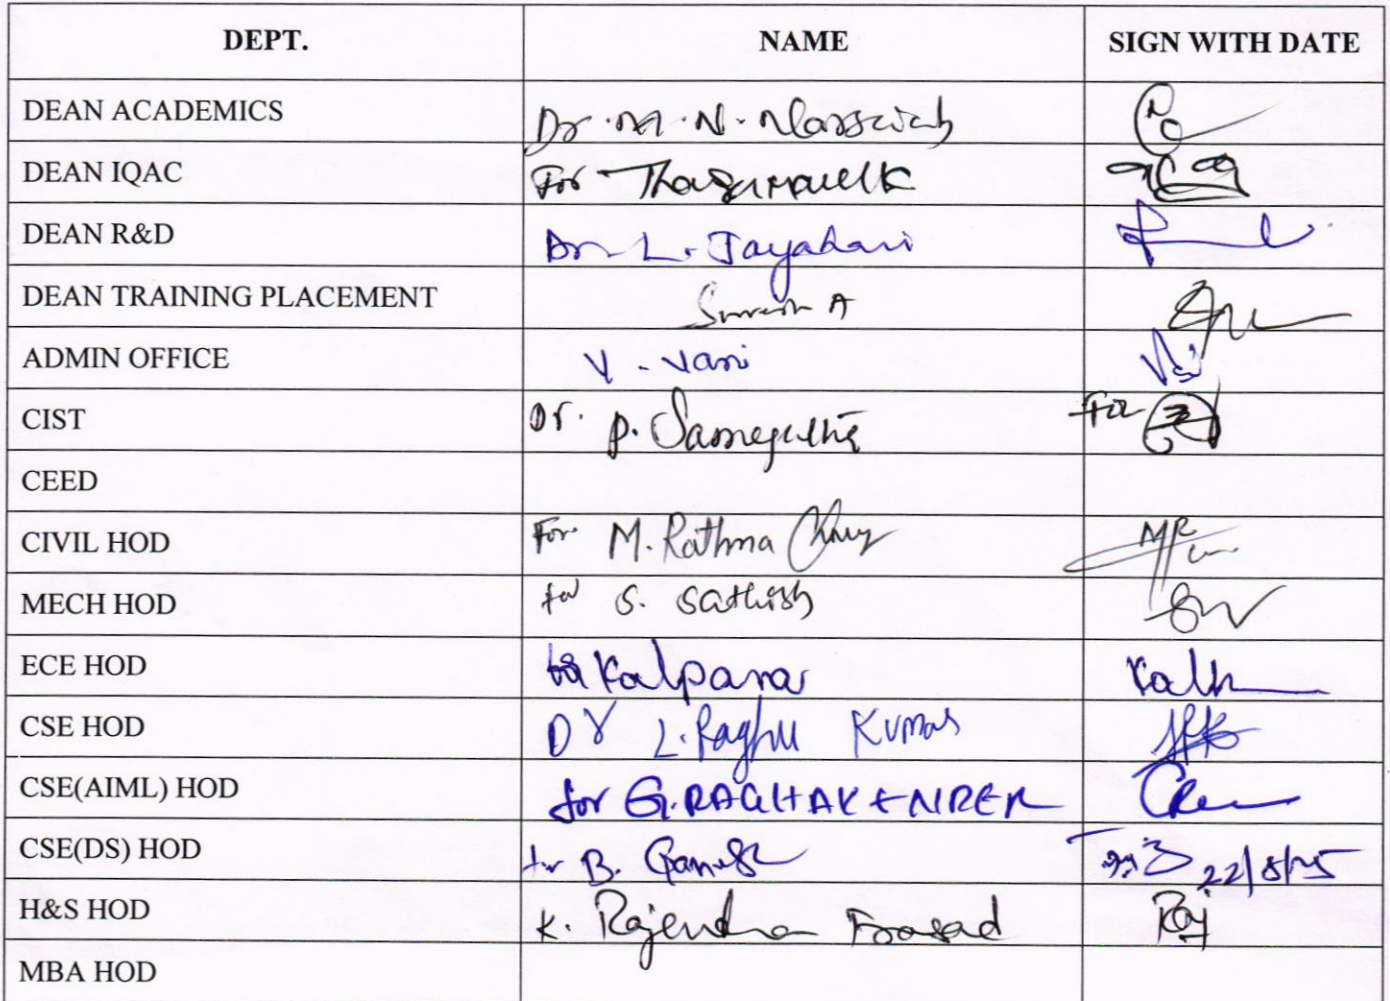 DEPT. NAME SIGN WITH DATE
DEAN ACADEMICS Dr. M. N. Narsaiah
DEAN IQAC For
DEAN R&D Dr L. Jayahari
DEAN TRAINING PLACEMENT Suresh A
ADMIN OFFICE V. Vani
CIST Dr. P. For
CEED
CIVIL HOD For M. Rathna
MECH HOD for S. Sathish
ECE HOD Kalpana
CSE HOD Dr L. Raghu Kumar
CSE(AIML) HOD for G.
CSE(DS) HOD for B. Ganesh 22/8/25
H&S HOD K. Rajendra Prasad Raj
MBA HOD